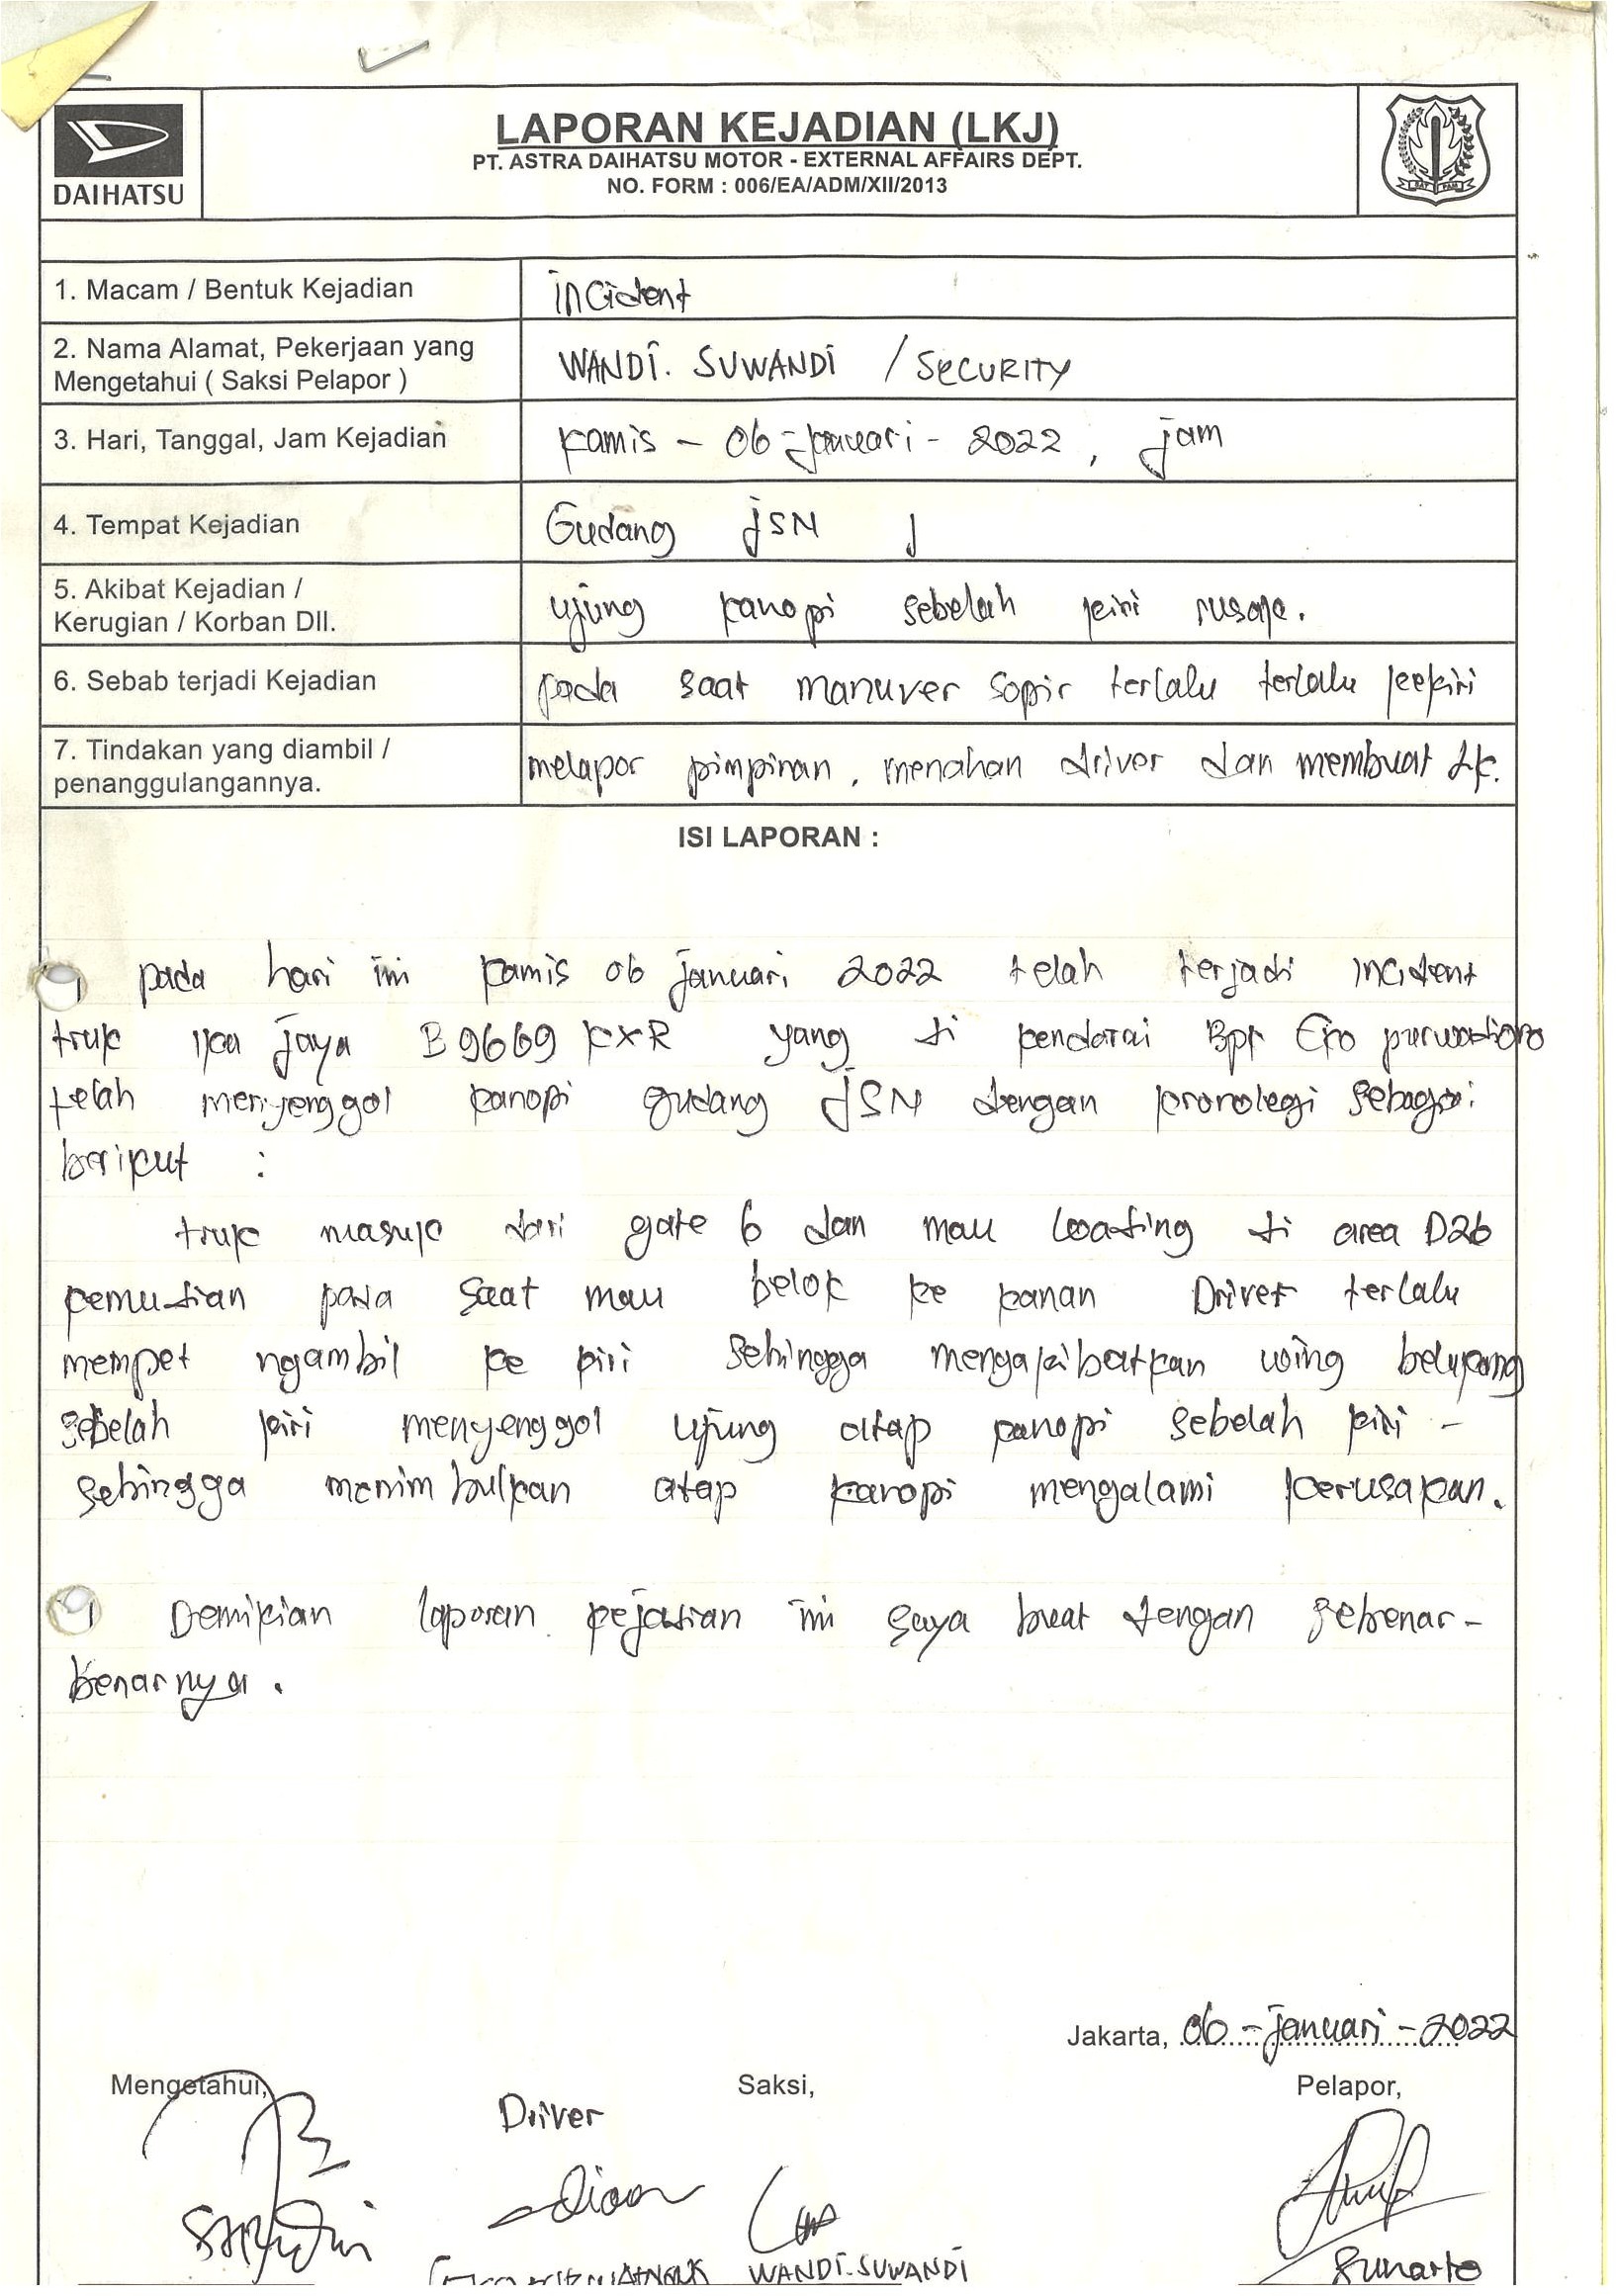 DAIHATSU
LAPORAN KEJADIAN (LKJ)
PT. ASTRA DAIHATSU MOTOR - EXTERNAL AFFAIRS DEPT.
NO. FORM : 006/EA/ADM/XII/2013
SAT PAM
1. Macam / Bentuk Kejadian
incident
2. Nama Alamat, Pekerjaan yang
Mengetahui ( Saksi Pelapor )
WANDI. SUWANDI / SECURITY
3. Hari, Tanggal, Jam Kejadian
Kamis - 06 - Januari - 2022 , jam
4. Tempat Kejadian
Gudang JSN
5. Akibat Kejadian /
Kerugian / Korban Dll.
ujung kanopi sebelah kiri rusak.
6. Sebab terjadi Kejadian
pada saat manuver sopir terlalu terlalu kekiri
7. Tindakan yang diambil /
penanggulangannya.
melapor pimpinan, menahan driver dan membuat LK.
ISI LAPORAN :
pada hari ini kamis 06 januari 2022 telah terjadi incident
truk ika jaya B 9669 KXR yang di kendarai Bpk Eko purwantoro
telah menyenggol kanopi gudang JSN dengan kronologi sebagai
berikut :
truk masuk dari gate 6 dan mau loading di area D26
kemudian pada saat mau belok ke kanan Driver terlalu
mempet ngambil ke kiri sehingga mengakibatkan wing belakang
sebelah kiri menyenggol ujung atap kanopi sebelah kiri -
sehingga menimbulkan atap kanopi mengalami kerusakan.
Demikian laporan kejadian ini saya buat dengan sebenar-
benarnya.
Jakarta, 06 - januari - 2022
Mengetahui, Saksi, Pelapor,
Driver
WANDI. SUWANDI Sunarto